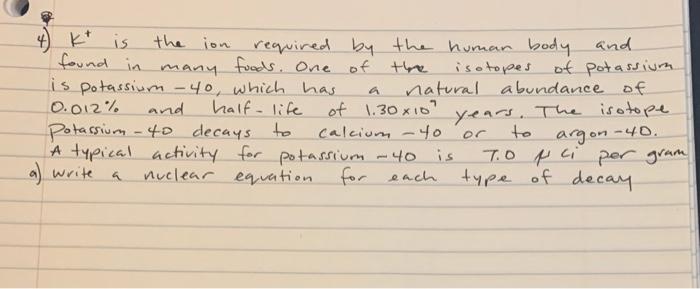 4) K⁺ is the ion required by the human body and
found in many foods. One of the isotopes of potassium
is potassium - 40, which has a natural abundance of
0.012% and half-life of 1.30 x 10⁹ years. The isotope
Potassium - 40 decays to calcium - 40 or to argon - 40.
A typical activity for potassium - 40 is 7.0 μ Ci per gram
a) write a nuclear equation for each type of decay